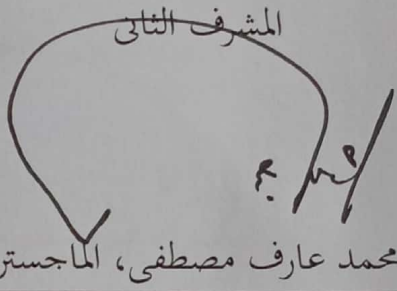 المشرف الثانى
محمد عارف مصطفى، الماجستر